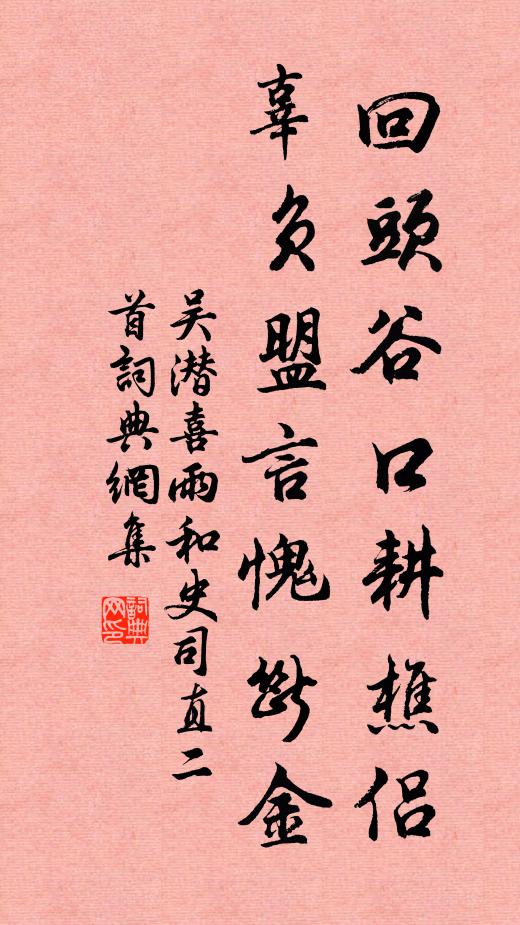 回頭谷口耕樵侶
辜負盟言愧斷金
吴潜喜雨和史司直二
首詞典網集
詞典网印